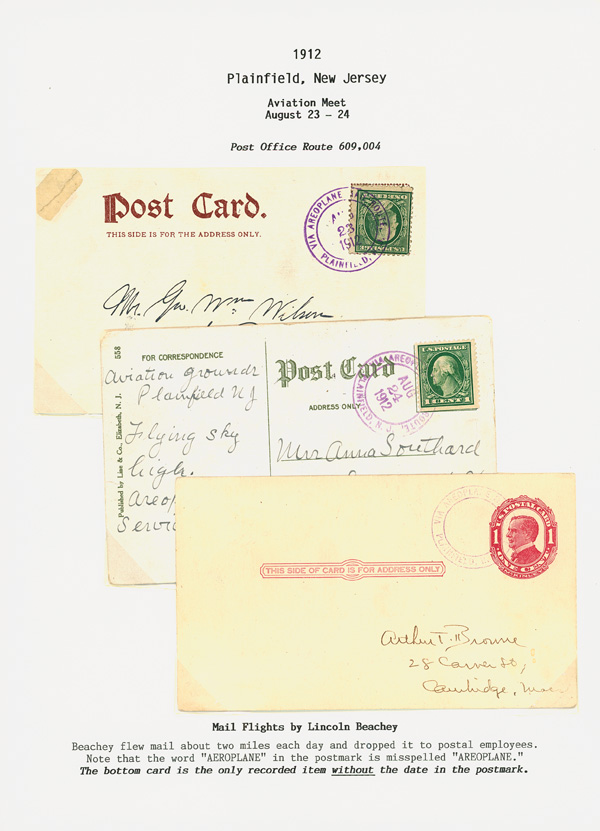 1912
Plainfield, New Jersey
Aviation Meet
August 23 - 24
Post Office Route 609,004
Post Card.
THIS SIDE IS FOR THE ADDRESS ONLY.
VIA AREOPLANE
AUG
23
1912
PLAINFIELD,
Mr. Geo. Wm Wilson
558
FOR CORRESPONDENCE
Post Card
ADDRESS ONLY
Published by Line & Co., Elizabeth, N. J.
Aviation grounds
Plainfield NJ
Flying sky
high.
Areop
Servic
VIA AREOP
AUG
24
1912
ROUTE,
PLAINFIELD, N. J.
U.S. POSTAGE
1 CENT 1
Mrs Anna Southard
THIS SIDE OF CARD IS FOR ADDRESS ONLY
VIA AREOPLANE
PLAINFIELD,
U.S. POSTAL CARD
1 1
ONE CENT
Arthur T. Browne
28 Carver St,
Cambridge, Mass
Mail Flights by Lincoln Beachey
Beachey flew mail about two miles each day and dropped it to postal employees.
Note that the word "AEROPLANE" in the postmark is misspelled "AREOPLANE."
The bottom card is the only recorded item without the date in the postmark.